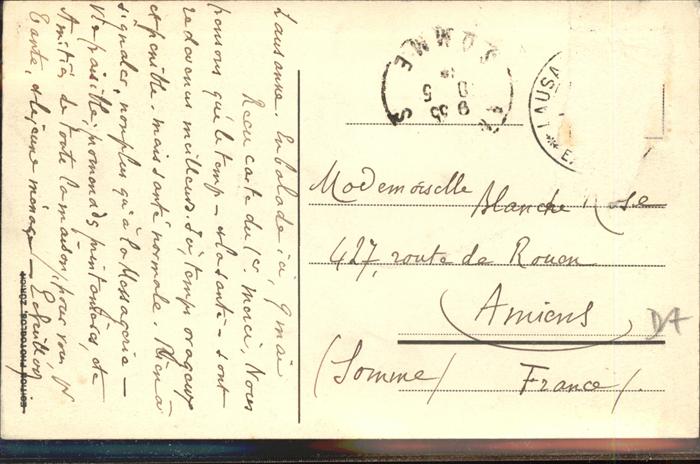 Lausanne. En balade ici, 9 mai
Reçu carte du 1er. Merci. Nous
pensons que le temps – et la santé – sont
redevenus meilleurs. Ici, temps orageux
et pénible. mais santé normale. Rien à
signaler, non plus qu'à la Messagerie –
Vie paisible, promenades printanières, etc
Amitiés de toute la maison, pour vous,
Tante, et le jeune ménage –
EDITION PHOTOGLOB, ZÜRICH
AMIENS SOMME
9 35
9 5
LAUSA
Mademoiselle Blanche Rose
427, route de Rouen
Amiens
(Somme) France.
D7